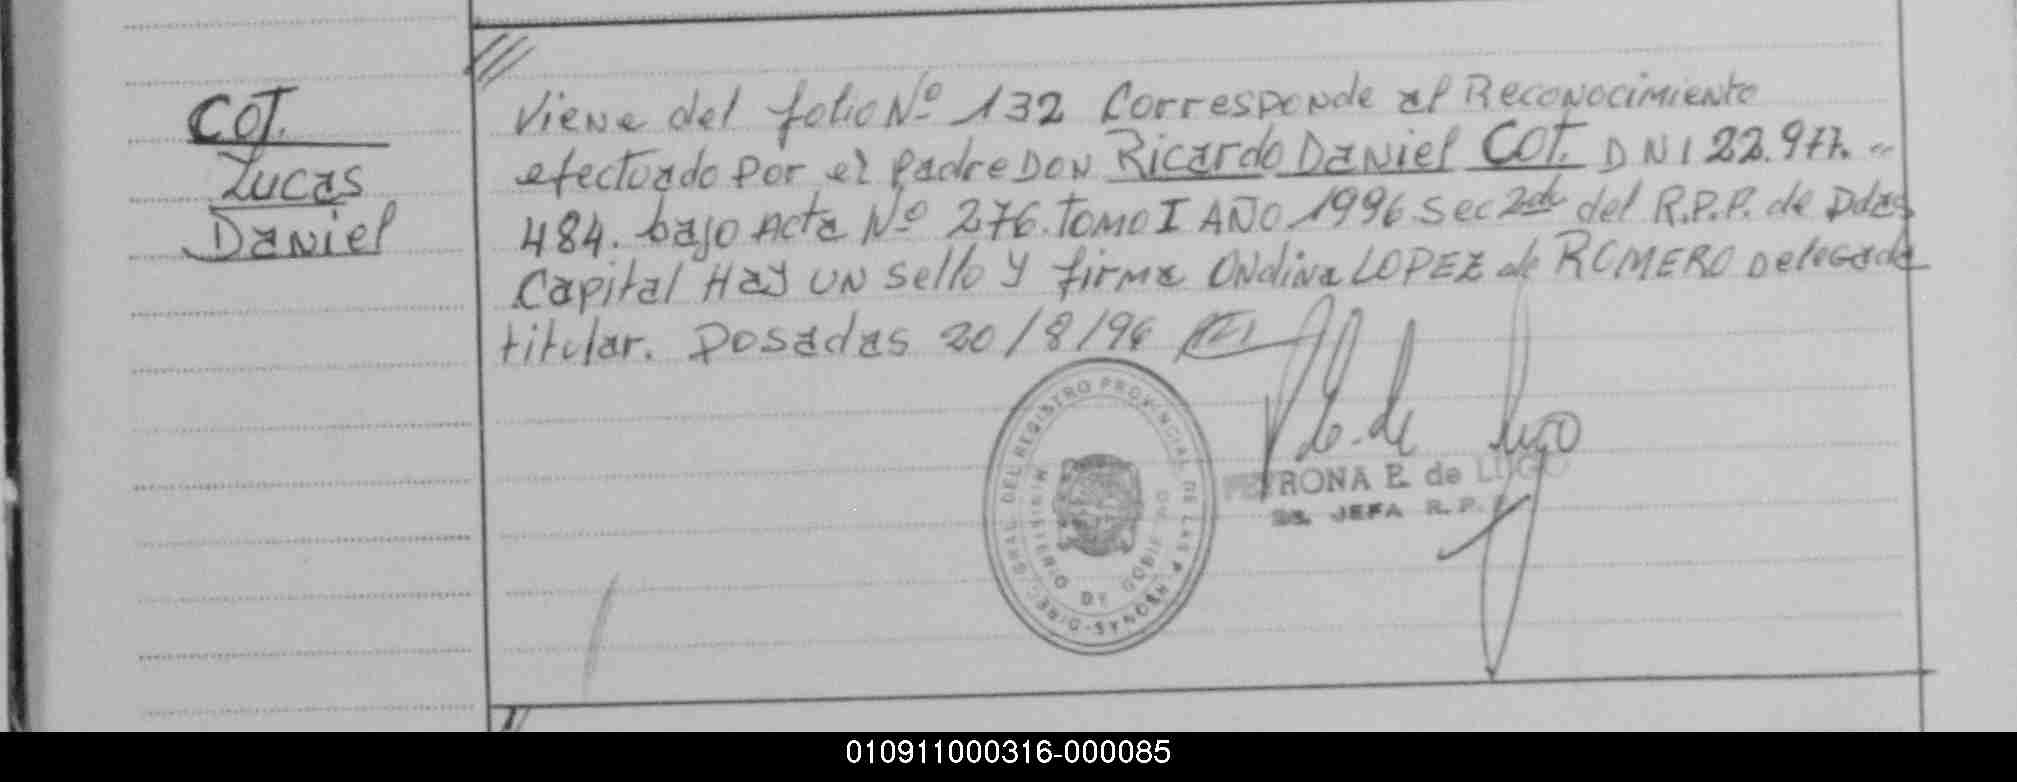 COT.
Lucas
Daniel
Viene del folio Nº 132 Corresponde al Reconocimiento
efectuado por el padre DON Ricardo Daniel COT. DNI 22.977.-
484. bajo Acta Nº 276. TOMO I AÑO 1996. Sec 2da del R.P.P. de Pdas
Capital Hay UN Sello Y firma Ondina LOPEZ de ROMERO Delegada
titular. Posadas 20/8/96
DIREC. GRAL. DEL REGISTRO PROVINCIAL DE LAS PERSONAS
MINISTERIO DE GOBIERNO
P. E. de Lugo
PETRONA E. de LUGO
JEFA R.P.
010911000316-000085